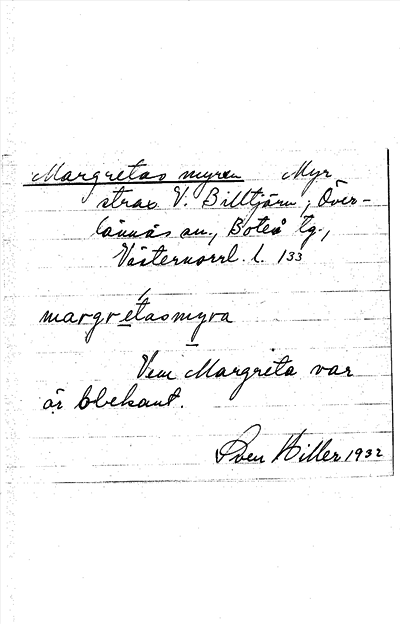 Margretas myren Myr
strax V. Billtjärn, Över-
lännäs sn., Boteå tg.,
Västernorrl. l. 133
margretasmyra
Vem Margreta var
är obekant.
Sven Hiller 1932